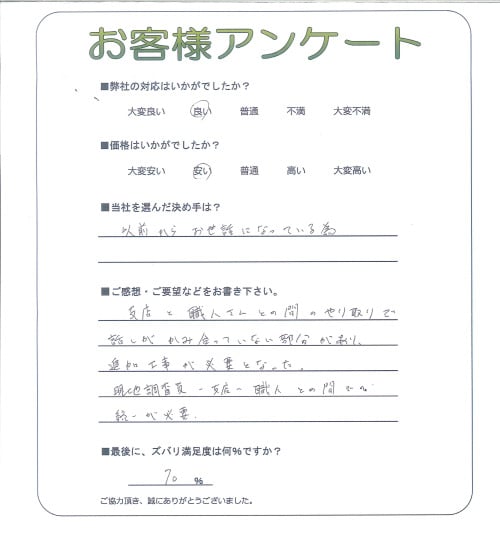 お客様アンケート
■弊社の対応はいかがでしたか？
大変良い 良い 普通 不満 大変不満
■価格はいかがでしたか？
大変安い 安い 普通 高い 大変高い
■当社を選んだ決め手は？
以前からお世話になっている為
■ご感想・ご要望などをお書き下さい。
支店と職人さんとの間のやり取りで
話しがかみ合っていない部分があり、
追加工事が必要となった。
現地調査員－支店－職人との間での
統一が必要.
■最後に、ズバリ満足度は何％ですか？
70 ％
ご協力頂き、誠にありがとうございました。